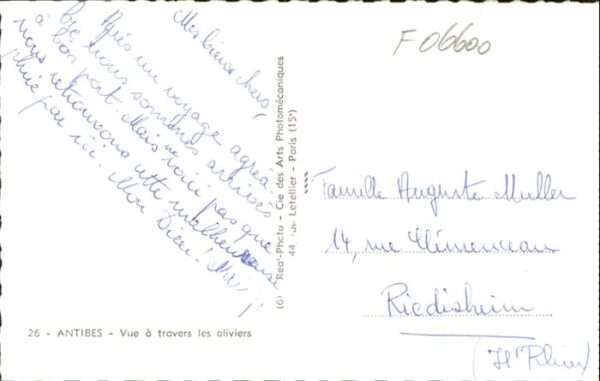 Mes bien chers,
Après un voyage agréa-
ble nous sommes arrivés
à bon port. Mais voici pas que
nous retrouvons cette malheureuse
pluie par ici. Mon Dieu! Mais
26 - ANTIBES - Vue à travers les oliviers
"Réa"-Photo - Cie des Arts Photomécaniques
44, rue Letellier - Paris (15e)
F 06600
Famille Auguste Muller
14, rue Clémenceau
Riedisheim
(Ht Rhin)